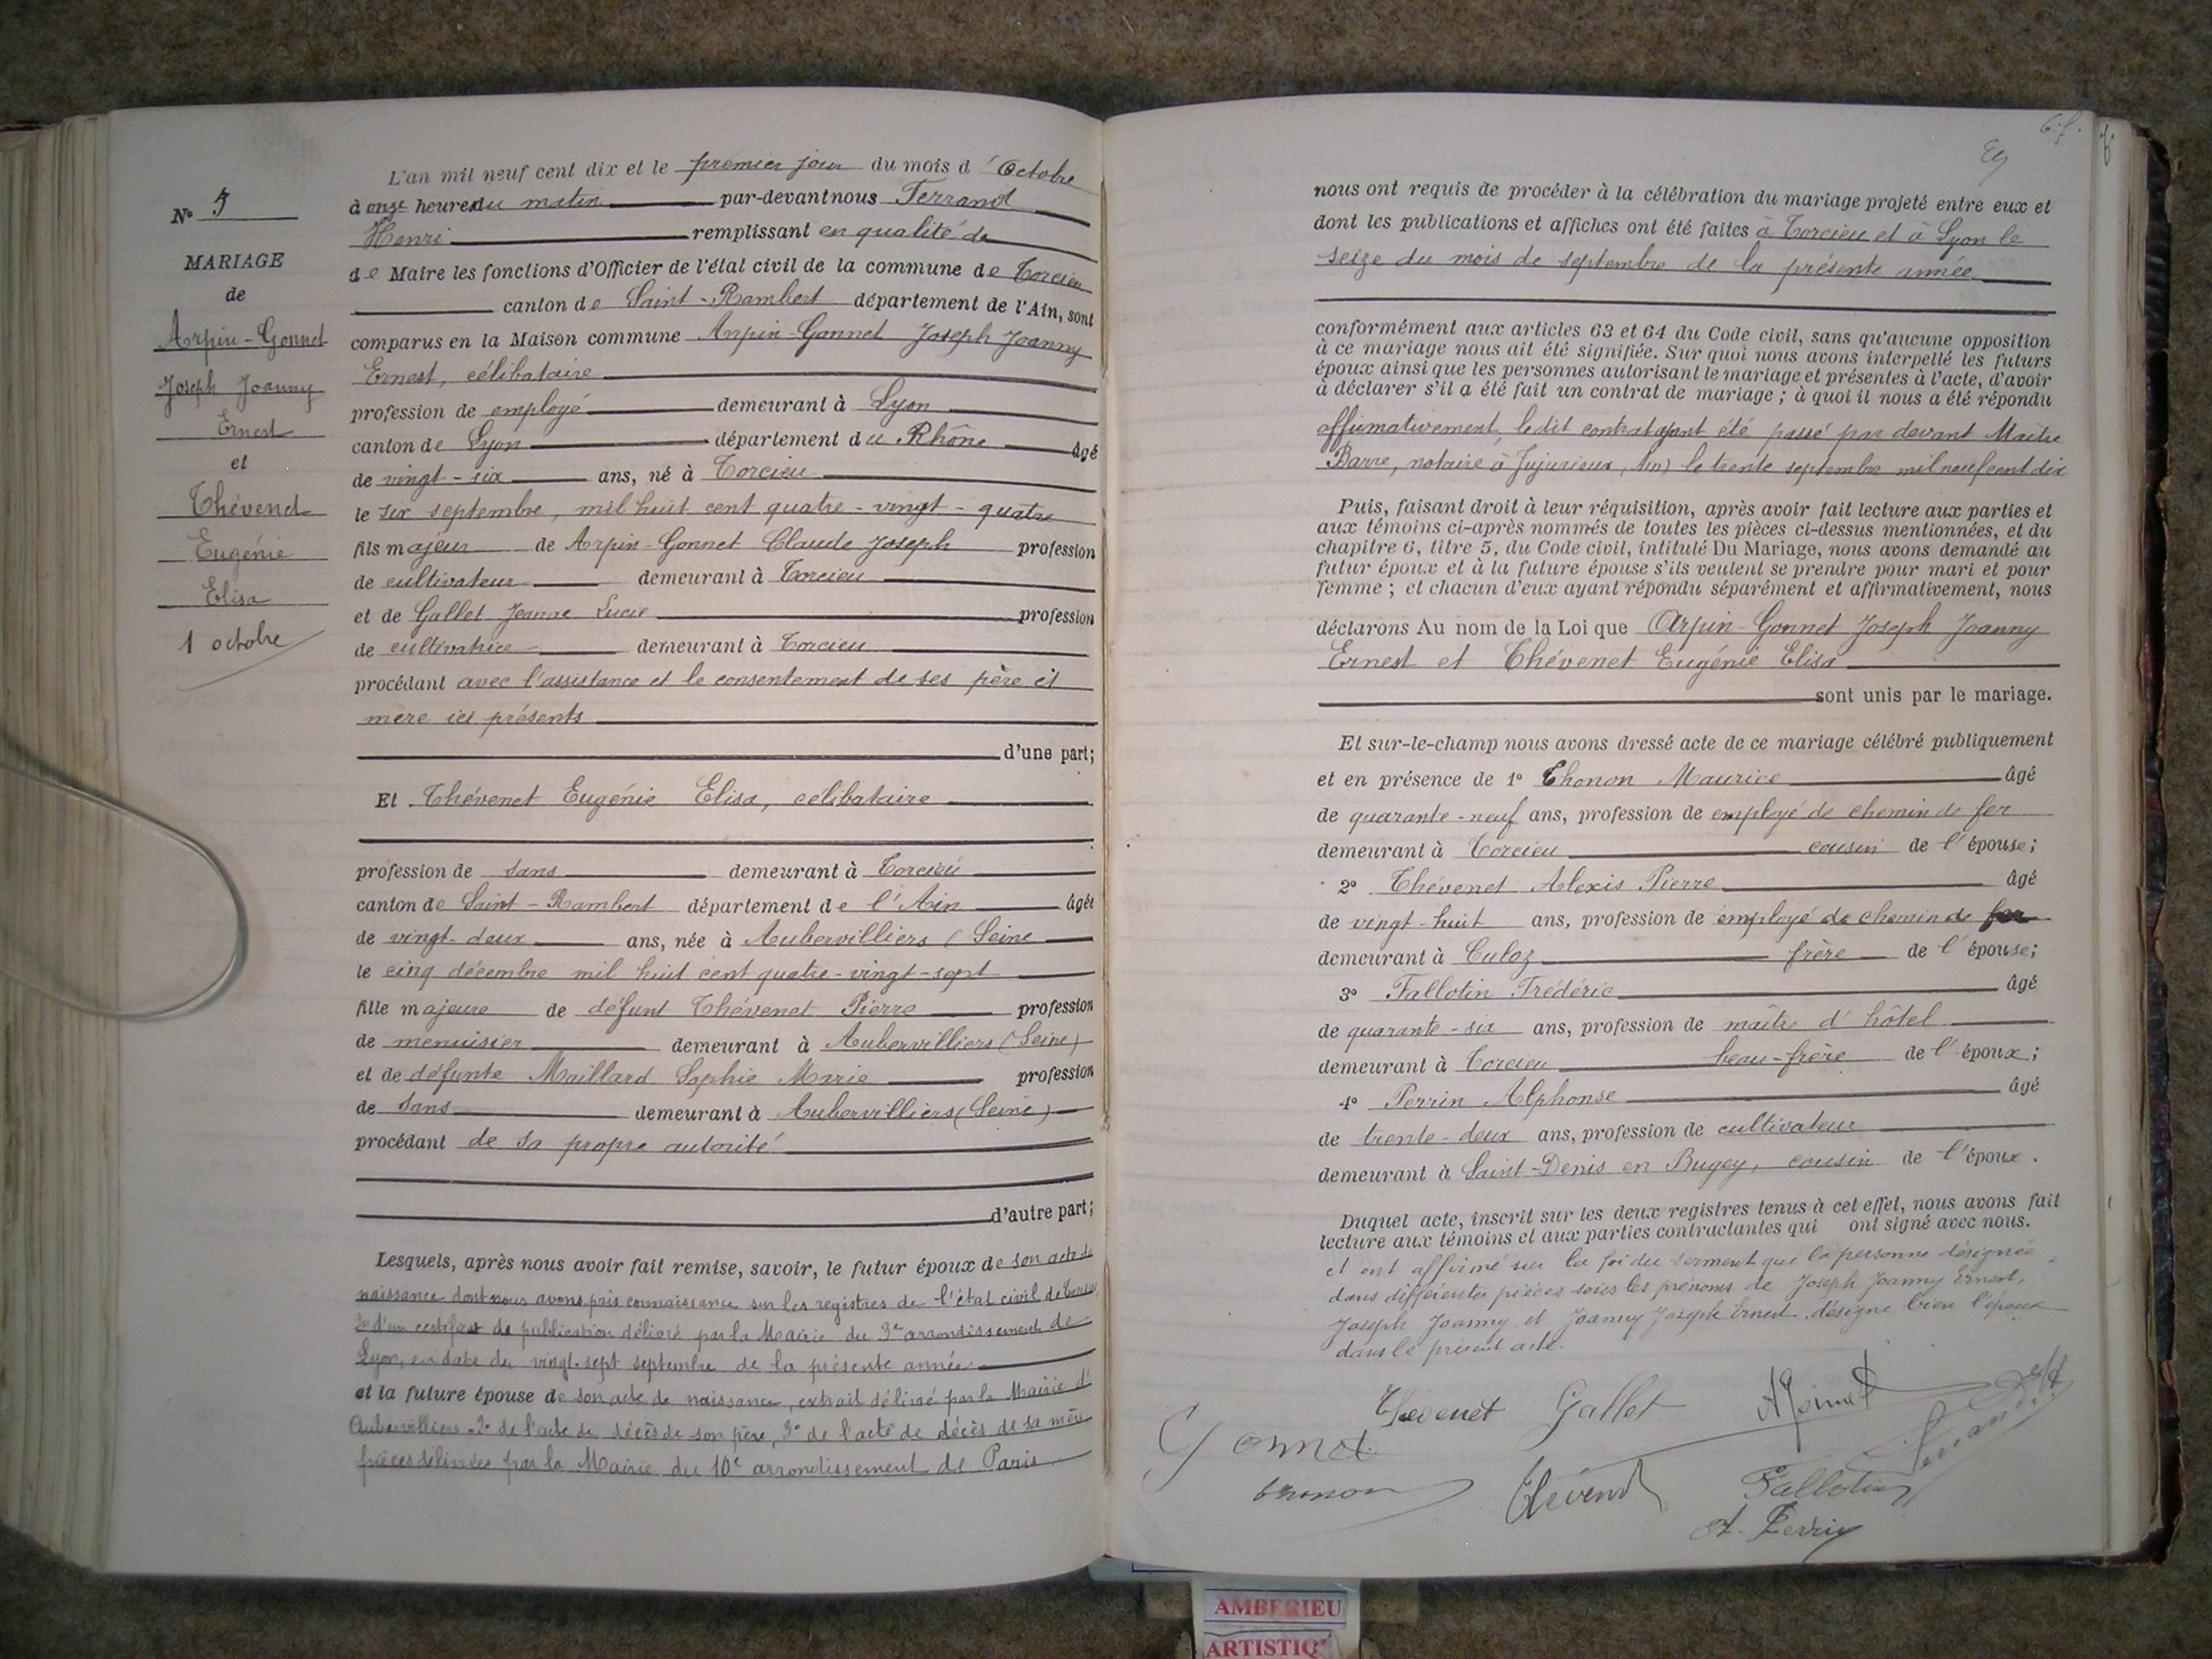 N° 5
MARIAGE
de
Arpin-Gonnet
Joseph Joanny
Ernest
et
Thévenet
Eugénie
Elisa
1 octobre
L'an mil neuf cent dix et le premier jour du mois d'Octobre
à onze heures du matin par-devant nous Ferrand
Henri remplissant en qualité de
de Maire les fonctions d'Officier de l'état civil de la commune de Torcieu
canton de Saint-Rambert département de l'Ain, sont
comparus en la Maison commune Arpin-Gonnet Joseph Joanny
Ernest, célibataire
profession de employé demeurant à Lyon
canton de Lyon département du Rhône âgé
de vingt-six ans, né à Torcieu
le six septembre, mil huit cent quatre-vingt-quatre
fils majeur de Arpin-Gonnet Claude Joseph profession
de cultivateur demeurant à Torcieu
et de Gallet Jeanne Lucie profession
de cultivatrice demeurant à Torcieu
procédant avec l'assistance et le consentement de ses père et
mère ici présents
d'une part;
Et Thévenet Eugénie Elisa, célibataire
profession de sans demeurant à Torcieu
canton de Saint-Rambert département de l'Ain âgée
de vingt-deux ans, née à Aubervilliers (Seine
le cinq décembre mil huit cent quatre-vingt-sept
fille majeure de défunt Thévenet Pierre profession
de menuisier demeurant à Aubervilliers (Seine)
et de défunte Maillard Sophie Marie profession
de sans demeurant à Aubervilliers (Seine)
procédant de sa propre autorité
d'autre part;
Lesquels, après nous avoir fait remise, savoir, le futur époux de son acte de
naissance dont nous avons pris connaissance sur les registres de l'état civil de Torcieu,
2° d'un certificat de publication délivré par la Mairie du 3e arrondissement de
Lyon, en date du vingt-sept septembre de la présente année
et la future épouse de son acte de naissance, extrait délivré par la Mairie d'
Aubervilliers 2° de l'acte de décès de son père, 3° de l'acte de décès de sa mère
pièces délivrées par la Mairie du 10e arrondissement de Paris
nous ont requis de procéder à la célébration du mariage projeté entre eux et
dont les publications et affiches ont été faites à Torcieu et à Lyon le
seize du mois de septembre de la présente année
conformément aux articles 63 et 64 du Code civil, sans qu'aucune opposition
à ce mariage nous ait été signifiée. Sur quoi nous avons interpellé les futurs
époux ainsi que les personnes autorisant le mariage et présentes à l'acte, d'avoir
à déclarer s'il a été fait un contrat de mariage; à quoi il nous a été répondu
affirmativement, ledit contrat ayant été passé par devant Maître
Barre, notaire à Jujurieux, Ain) le trente septembre mil neuf cent dix
Puis, faisant droit à leur réquisition, après avoir fait lecture aux parties et
aux témoins ci-après nommés de toutes les pièces ci-dessus mentionnées, et du
chapitre 6, titre 5, du Code civil, intitulé Du Mariage, nous avons demandé au
futur époux et à la future épouse s'ils veulent se prendre pour mari et pour
femme; et chacun d'eux ayant répondu séparément et affirmativement, nous
déclarons Au nom de la Loi que Arpin-Gonnet Joseph Joanny
Ernest et Thévenet Eugénie Elisa
sont unis par le mariage.
Et sur-le-champ nous avons dressé acte de ce mariage célébré publiquement
et en présence de 1° Thonon Maurice âgé
de quarante-neuf ans, profession de employé de chemin de fer
demeurant à Torcieu cousin de l'épouse;
2° Thévenet Alexis Pierre âgé
de vingt-huit ans, profession de employé de chemin de fer
demeurant à Culoz frère de l'épouse;
3° Fallotin Frédéric âgé
de quarante-six ans, profession de maître d'hôtel
demeurant à Torcieu beau-frère de l'époux;
4° Perrin Alphonse âgé
de trente-deux ans, profession de cultivateur
demeurant à Saint-Denis en Bugey, cousin de l'époux.
Duquel acte, inscrit sur les deux registres tenus à cet effet, nous avons fait
lecture aux témoins et aux parties contractantes qui ont signé avec nous.
et ont affirmé sur la foi du serment que la personne désignée
dans différentes pièces sous les prénoms de Joseph Joanny Ernest,
Joseph Joanny et Joanny Joseph Ernest, désigne bien l'époux
dans le présent acte.
Thevenet Gallet
Gonnet
Thonon Thévenet Fallotin Ferrand
A. Perrin
AMBERIEU
ARTISTIQ